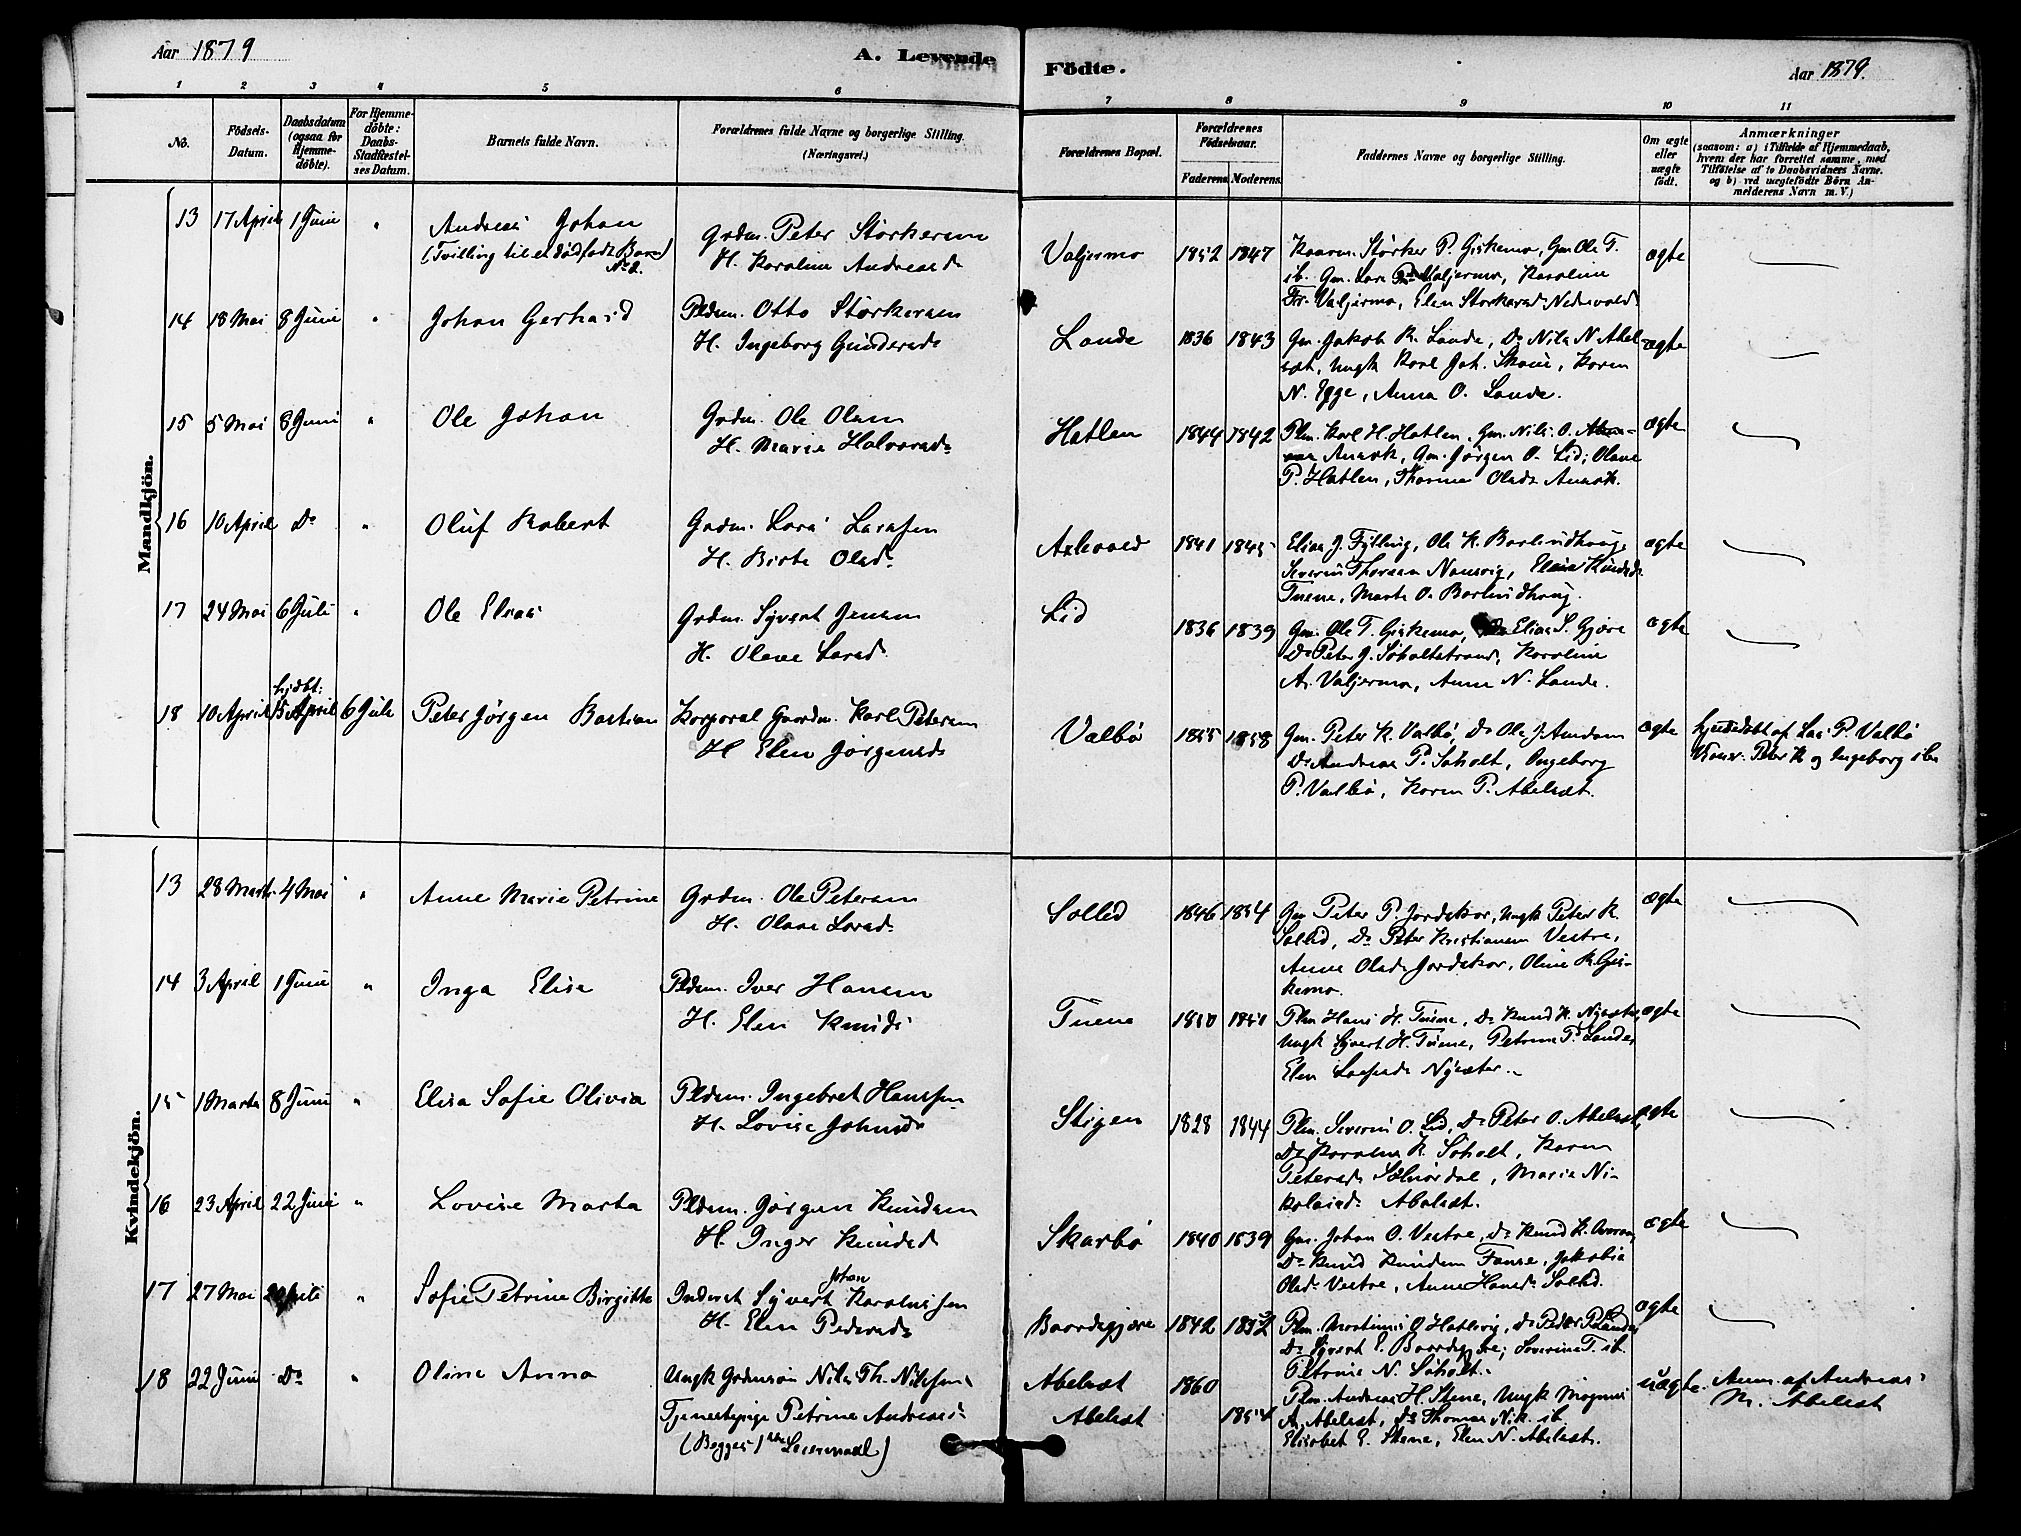 Aar 1879
A. Levende
Födte.
Aar 1879.
1 2 3 4 5 6 7 8 9 10 11
No.
Födsels-
Datum.
Daabsdatum
(ogsaa for
Hjemme-
döbte).
For Hjemme-
döbte:
Daabs-
Stadfæstel-
ses Datum.
Barnets fulde Navn.
Forældrenes fulde Navne og borgerlige Stilling.
(Næringsvei.)
Forældrenes Bopæl.
Forældrenes
Födselsaar.
Faderens. Moderens.
Faddernes Navne og borgerlige Stilling.
Om ægte
eller
uægte
födt.
Anmærkninger
(saasom: a) i Tilfælde af Hjemmedaab,
hvem der har forrettet samme, med
Tilföielse af to Daabsvidners Navne.
og b) ved uægtefödte Börn An-
melderens Navn m. V.)
Mandkjön.
13 17 April 1 Juni " Andreas Johan
(Tvilling til et dödfödt Barn
No 2.
Grdm. Peter Störkersen
H. Karoline Andreasd.
Valjermo 1852 1847
Störker P. Giskemo, Gm. Ole T.
ib. Gm. Lars Valjermo, Karoline
Valjermo, Elen Störkersd. Nedrevold
ægte
14 18 Mai 8 Juni " Johan Gerhard
Pldsm. Otto Störkersen
H. Ingeborg Gundersd.
Lande 1836 1843
Gm. Jakob K. Lande, Do Nils N. Abel-
sæt, Ungk. Karl Joh. Skoue, Karen
N. Egge, Anna O. Lande.
ægte
15 5 Mai 8 Juni " Ole Johan
Grdm. Ole Olsen
H. Marie Halvorsd.
Hatlen 1844 1842
Plm. Karl H. Hatlen, Gm. Nils O.
Aursk, Gm. Jörgen O. Lid, Olave
P. Hatlen, Thorine Olsd. Aursk.
ægte
16 10 April Do " Oluf Robert
Grdm. Lars Larssen
H. Birte Olsd.
1841 1845
Elias J. Fylling, Ole K. Barlindhaug
Severin Thorsen Nonsvig, Knudsd.
Tuene, Marte O. Barlindhaug.
ægte
17 24 Mai 6 Juli " Ole Elias
Grdm. Syvert Jensen
H. Olave Larsd.
Lid 1836 1839
Gm. Ole T. Giskemo, Do Elias S. Gjære
Do Peter J. Söholtstrand, Karoline
A. Valjermo, Anne N. Lande.
ægte
18 10 April hjdbt: 15 April 6 Juli Peter Jörgen Bastian
Korporal Gaardm. Karl Petersen
H. Elen Jörgensd.
Valbö 1855 1858
Gm. Peter K. Valbö, Do Ole J. Amdam
Do Andreas P. Söholt, Ingeborg
P. Valbö, Karen P. Abelsæt.
ægte
hjemdöbt af Lars P. Valbö
Peter K. og Ingeborg ibd.
Kvindekjön.
13 28 Marts 4 Mai " Anne Marie Petrine
Grdm. Ole Petersen
H. Olave Larsd.
Sollid 1846 1854
Gm. Peter P. Jordskar, Ungk. Peter K.
Sollid, Do Peter Kristiansen Vestre,
Anne Olsd. Jordskar, Oline K. Gis-
kemo.
ægte
14 3 April 1 Juni " Inga Elise
Pldsm. Iver Hansen
H. Elen Knuds.
Tuene 1850 1851
Plm. Hans H. Tuene, Do Knud K. Nysæter,
Ungk. Syvert H. Tuene, Petrine P. Lande,
Elen Nysæter.
ægte
15 1 Marts 8 Juni " Elisa Sofie Olivia
Pldsm. Ingebret Hanssen
H. Lovise Johnsd.
Stigen 1828 1844
Plm. Severin O. Lid, Do Peter O. Abelsæt,
Do Karolus K. Söholt, Karen
Petersd. Solnördal, Marie Ni-
kolaisd. Abelsæt.
ægte
16 23 April 22 Juni " Lovise Marta
Pldsm. Jörgen Knudsen
H. Inger Knudsd.
Skarbö 1840 1839
Gm. Johan O. Vestre, Do Knud K.
Do Knud Knudsen Tuene, Jakobia
Olsd. Vestre, Anne Hansd. Sollid.
ægte
17 27 Mai Juli " Sofie Petrine Birgitte
Inderst Syvert Johan Karolussen
H. Elen Pedersd.
Baardsgjære 1842 1852
Plm. Martinus O. Hatlevig, Do Peder P. Lande,
Do Syvert E. Baardsgjære, Severine T. ib.
Petrine N. Söholt.
ægte
18 22 Juni Do " Oline Anna
Ungk. Grdmsön Nils Th. Nilssen
Tjenestepige Petrine Andreasd.
(Begges 1ste Leiermaal)
Abelsæt 1860
Abelsæt 1854
Plm. Andreas H. Stene, Ungk. Magnus
A. Abelsæt, Do Thomas Nik. ib.
Elisabet E. Stene, Elen N. Abelsæt.
uægte.
Anm. af Andreas
M. Abelsæt